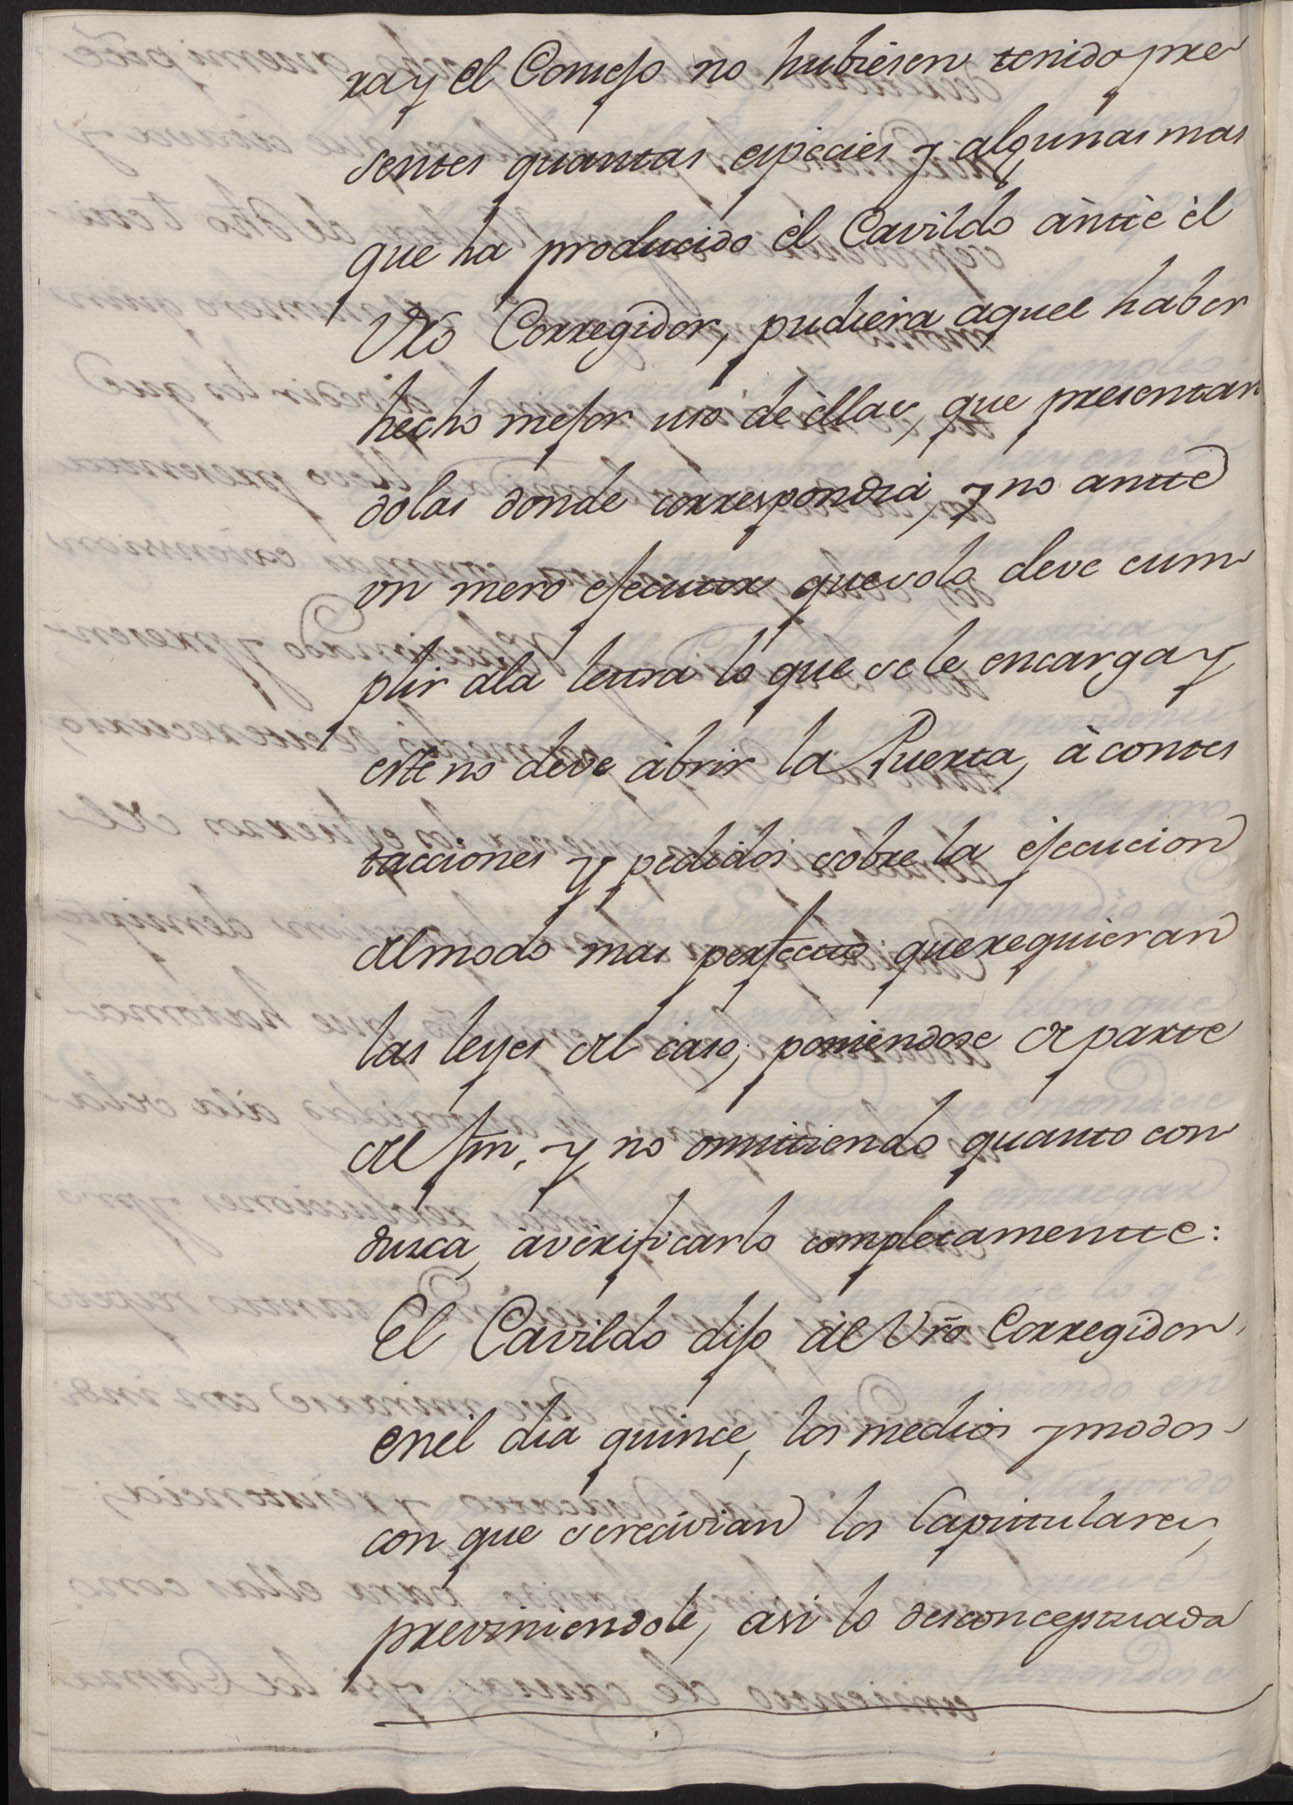 ra y el Consejo no hubiesen tenido pre
sentes quantas especies y algunas mas
que ha producido èl Cavildo ànte èl
Vr̃o Corregidor, pudiera aquel haber
hecho mejor uso de èllas, que presentan
dolas donde correspondia, y no ante
un mero ejecutor que solo deve cum
plir ala letra lo que se le encarga y
este no deve àbrir la Puerta, à contes
tacciones y pedidos sobre la ejecucion
del modo mas perfecto que requieran
las leyes del caso; poniendose de parte
del fin, y no omitiendo quanto con
dusca, àverificarlo completamente:
El Cavildo dijo àl Vr̃o Corregidor,
en èl dia quince, los medios y modos
con que se recivian los Capitulares,
previniendole, asi lo desconceptuada